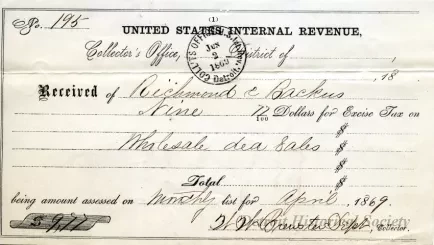 (1)
No. 195
UNITED STATES INTERNAL REVENUE,
Collector's Office, District of
COLL'S OFFICE
JUN 2 1869
Detroit
, 18
Received of Richmond & Backus
Nine 77/100 Dollars for Excise Tax on
Wholesale dea Sales
Total
being amount assessed on Monthly list for April, 1869.
$ 9,77
Collector.
Historical Society